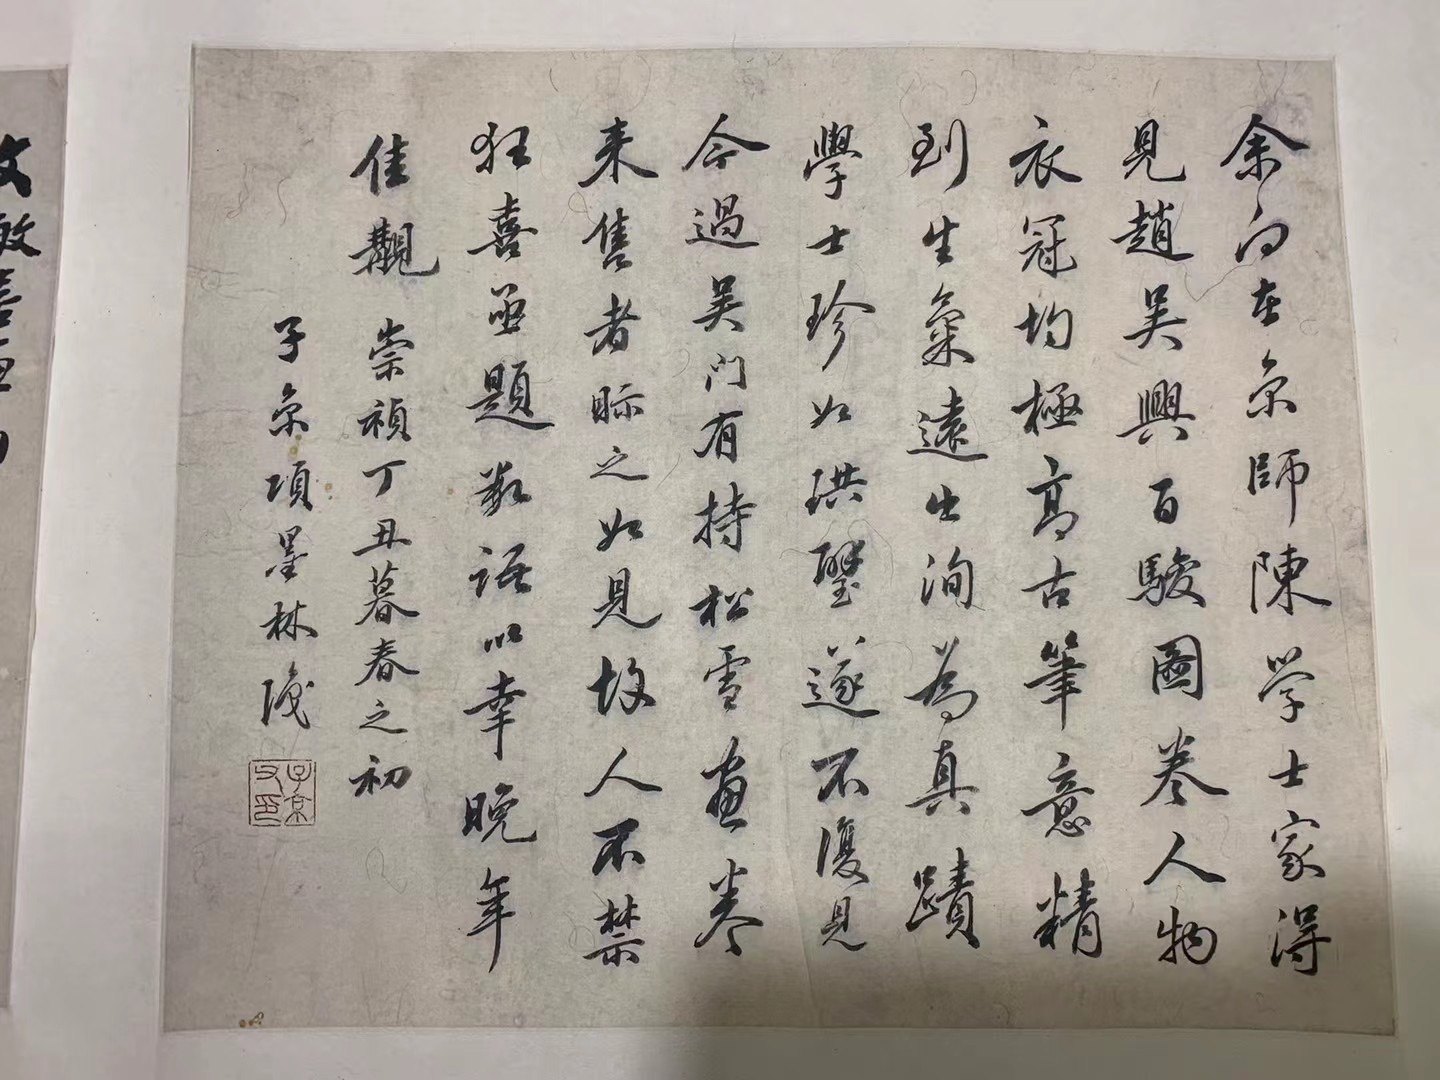 余向在京師陳學士家得
見趙吳興百駿圖卷人物
衣冠均極高古筆意精
到生氣遠出洵為真蹟
學士珍如珙璧遂不復見
今過吳門有持松雪畫卷
来售者眎之如見故人不禁
狂喜亟題數語以幸晚年
佳覯
崇禎丁丑暮春之初
子京項墨林識
子京
父印